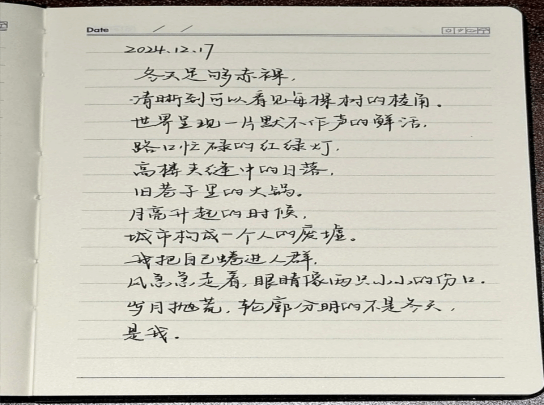 Date / /
2024.12.17
冬天足够赤裸,
清晰到可以看见每棵树的棱角。
世界呈现一片默不作声的鲜活,
路口忙碌的红绿灯,
高楼夹缝中的日落,
旧巷子里的大锅。
月亮升起的时候,
城市构成一个人的废墟。
我把自己蜷进人群,
风急急走着,眼睛像两只小小的伤口.
岁月抛荒,轮廓分明的不是冬天,
是我。